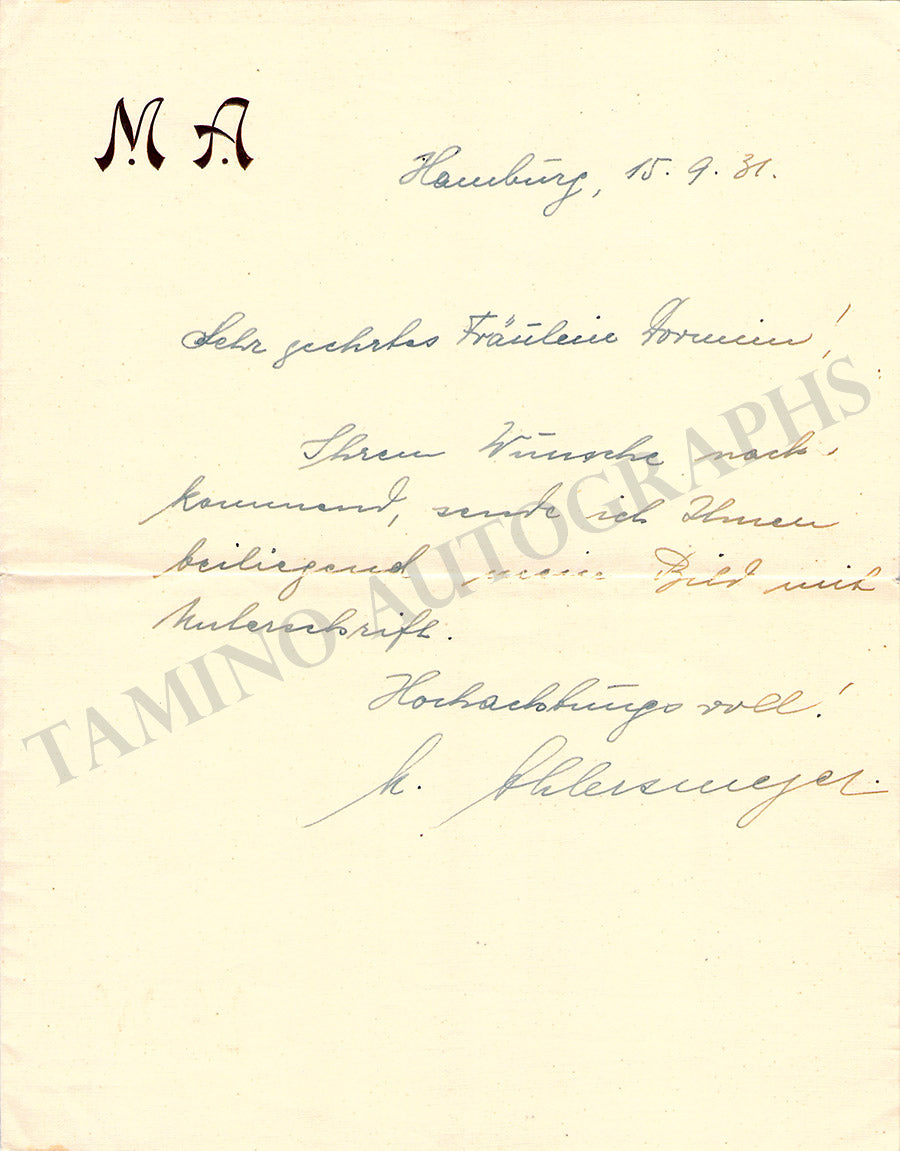 M. A.
Hamburg, 15. 9. 31.
Sehr geehrtes Fräulein Dormien!
Ihrem Wunsche nach-
kommend, sende ich Ihnen
beiliegend mein Bild mit
Unterschrift.
Hochachtungsvoll!
M. Ahlersmeyer.
TAMINO AUTOGRAPHS